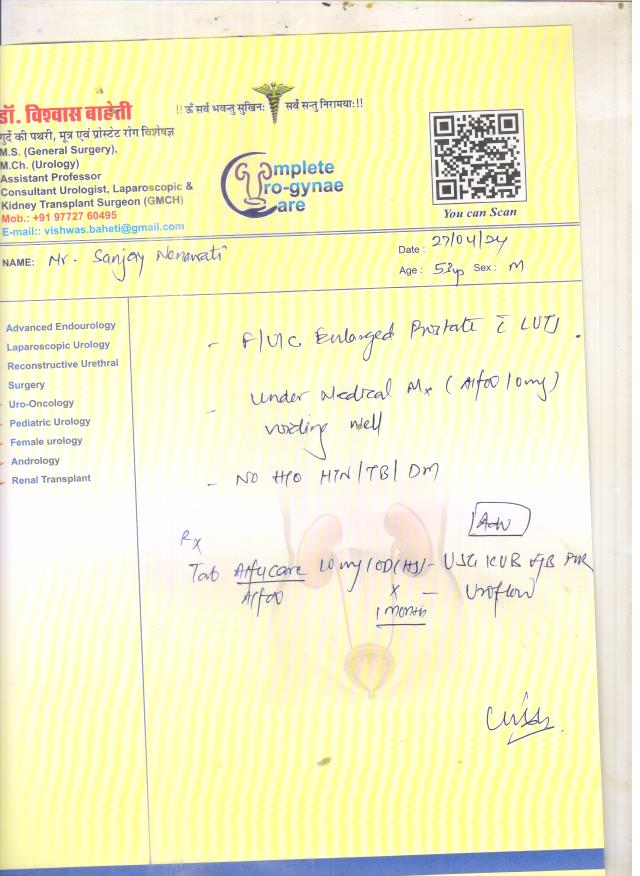 !!ॐ सर्वे भवन्तु सुखिनः सर्वे सन्तु निरामयाः!!
डॉ. विश्वास बाहेती
गुर्दे की पथरी, मूत्र एवं प्रोस्टेट रोग विशेषज्ञ
M.S. (General Surgery),
M.Ch. (Urology)
Assistant Professor
Consultant Urologist, Laparoscopic &
Kidney Transplant Surgeon (GMCH)
Mob.: +91 97727 60495
E-mail:: vishwas.baheti@gmail.com
Complete
Uro-gynae
Care
You can Scan
NAME: Mr. Sanjay
Date : 27/04/24
Age : 53yr Sex : M
Advanced Endourology
Laparoscopic Urology
Reconstructive Urethral
Surgery
Uro-Oncology
Pediatric Urology
Female urology
Andrology
Renal Transplant
- F/U/C Enlarged Prostate c̄ LUTS.
- Under Medical Mx (Alfoo 10mg)
voiding well
- NO H/O HTN/TB/DM
Adv
Rx
Tab 10mg OD(HS) - USG KUB PVR
Alfoo x - Uroflow
1 month